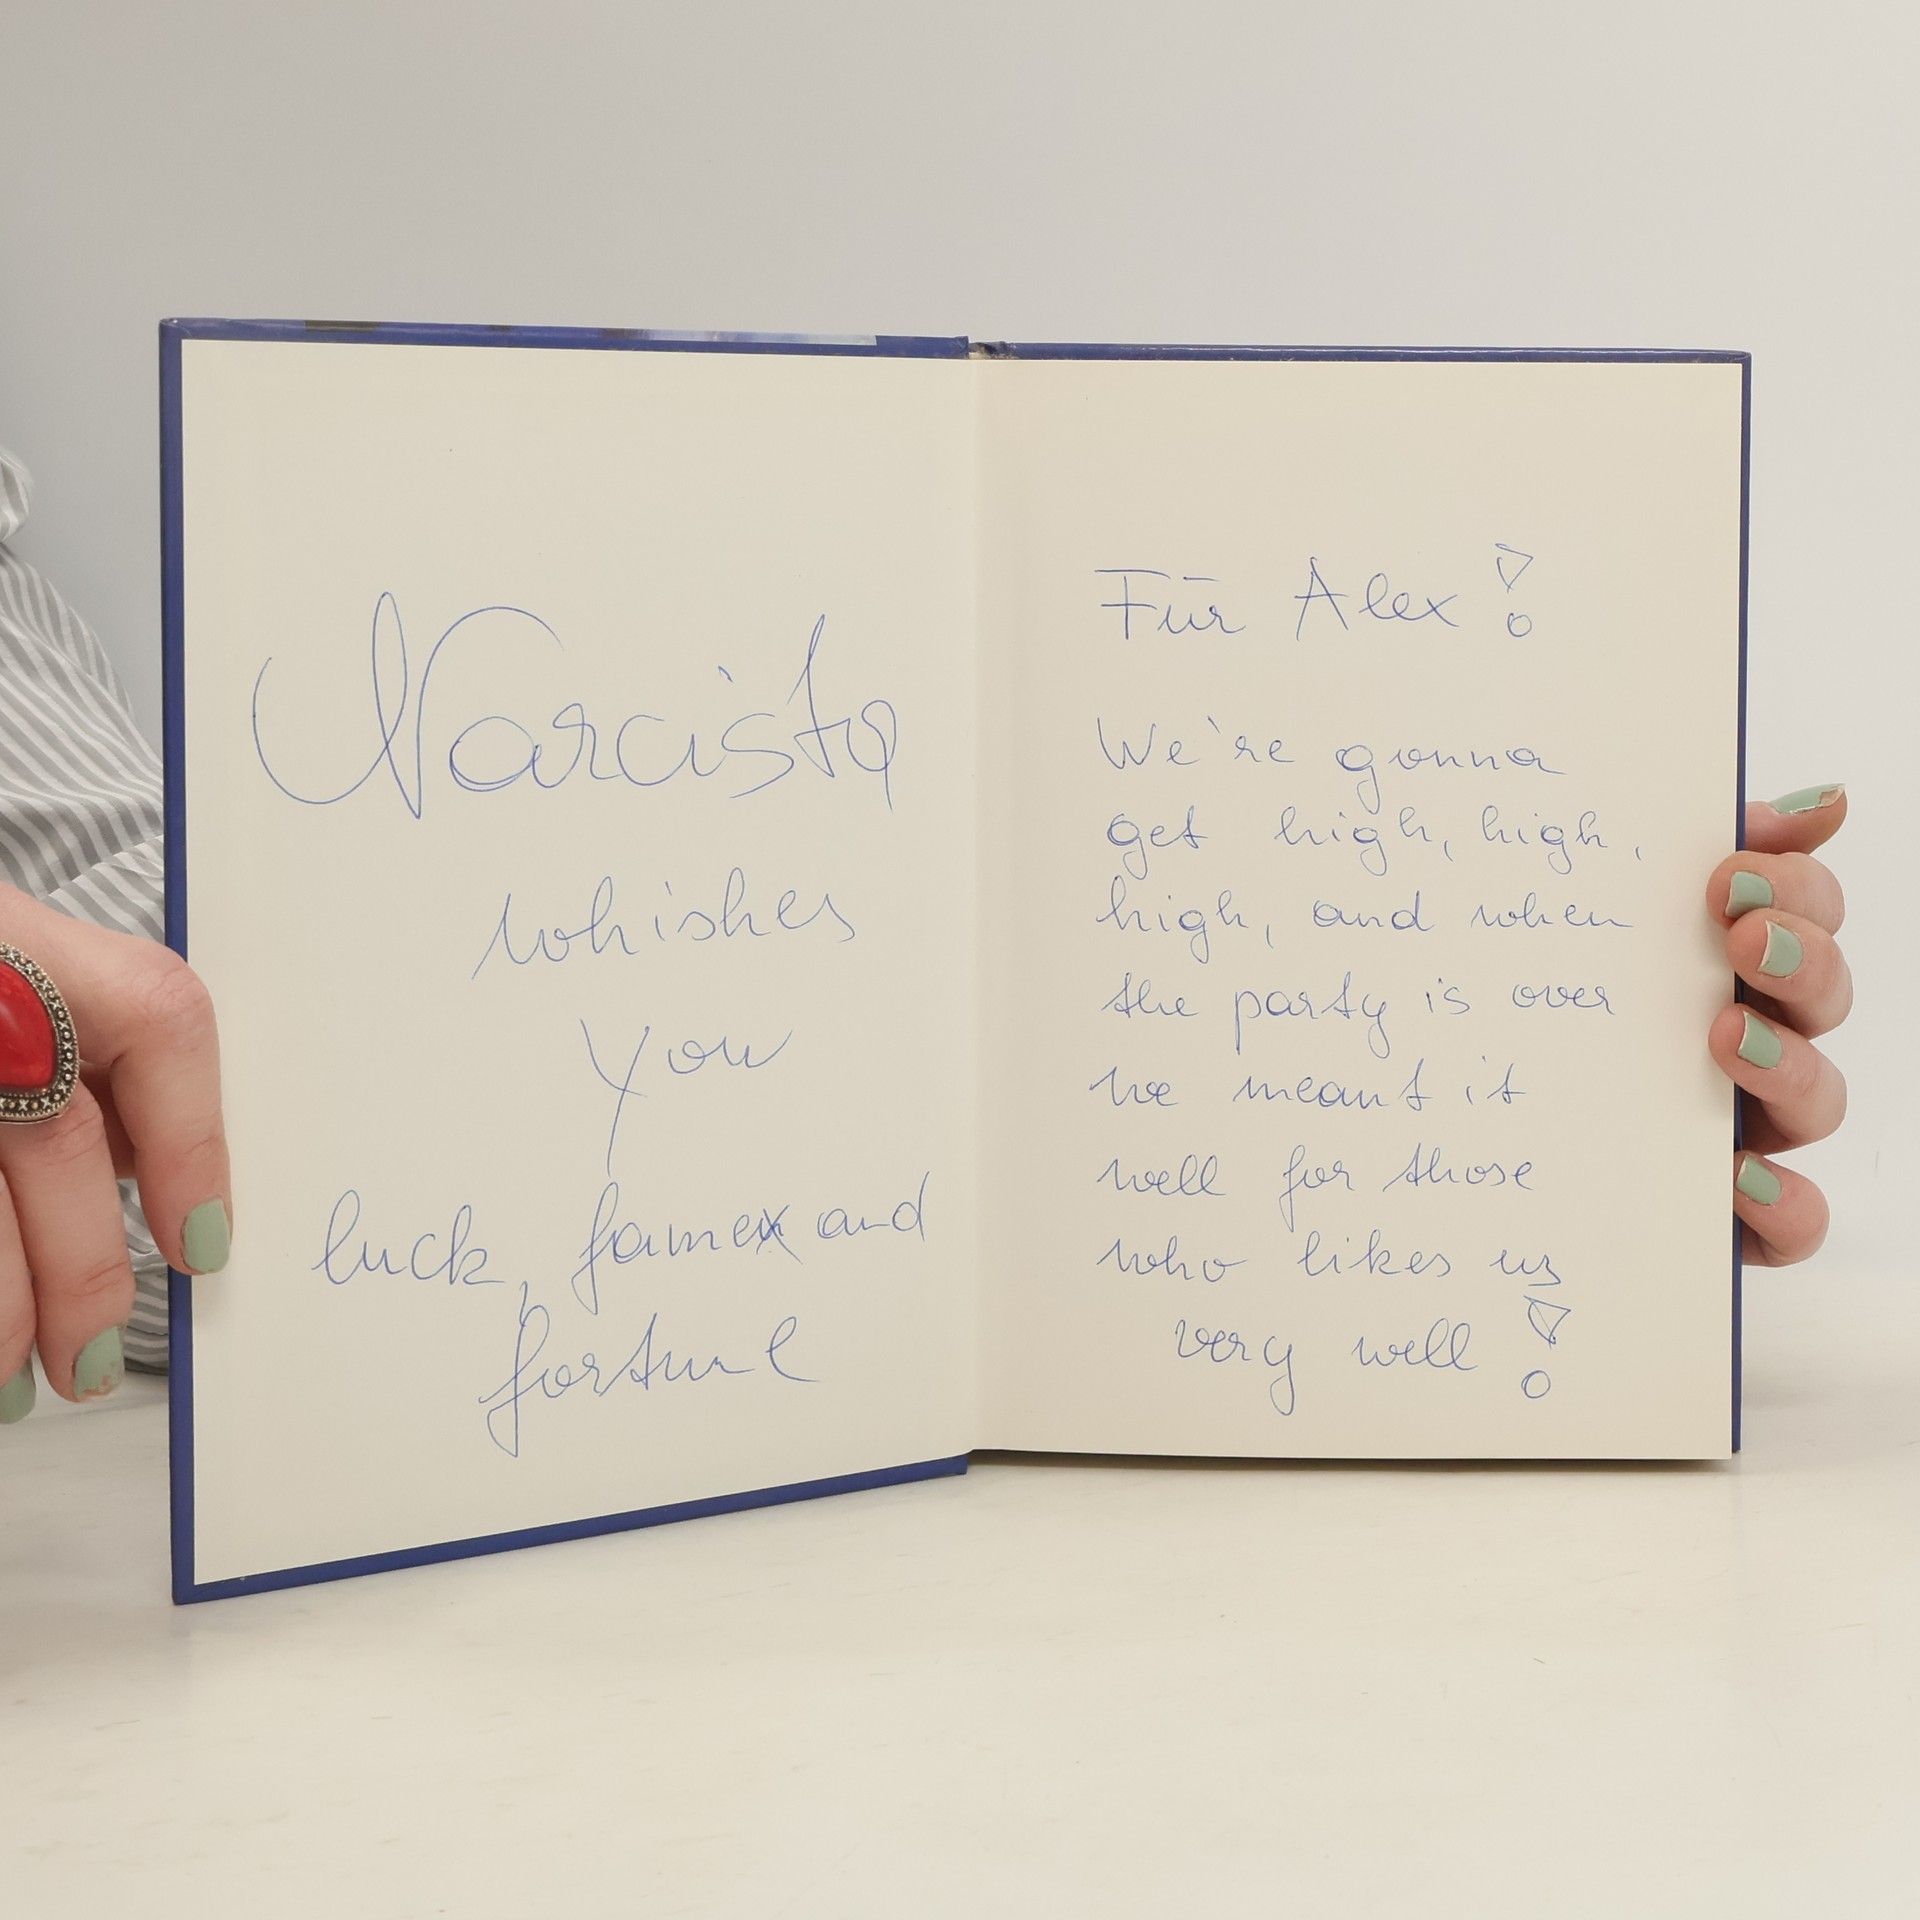 Narcista
whishes
you
luck, fame and
fortune
Für Alex!
We're gonna
get high, high,
high, and when
the party is over
we meant it
well for those
who likes us
very well!